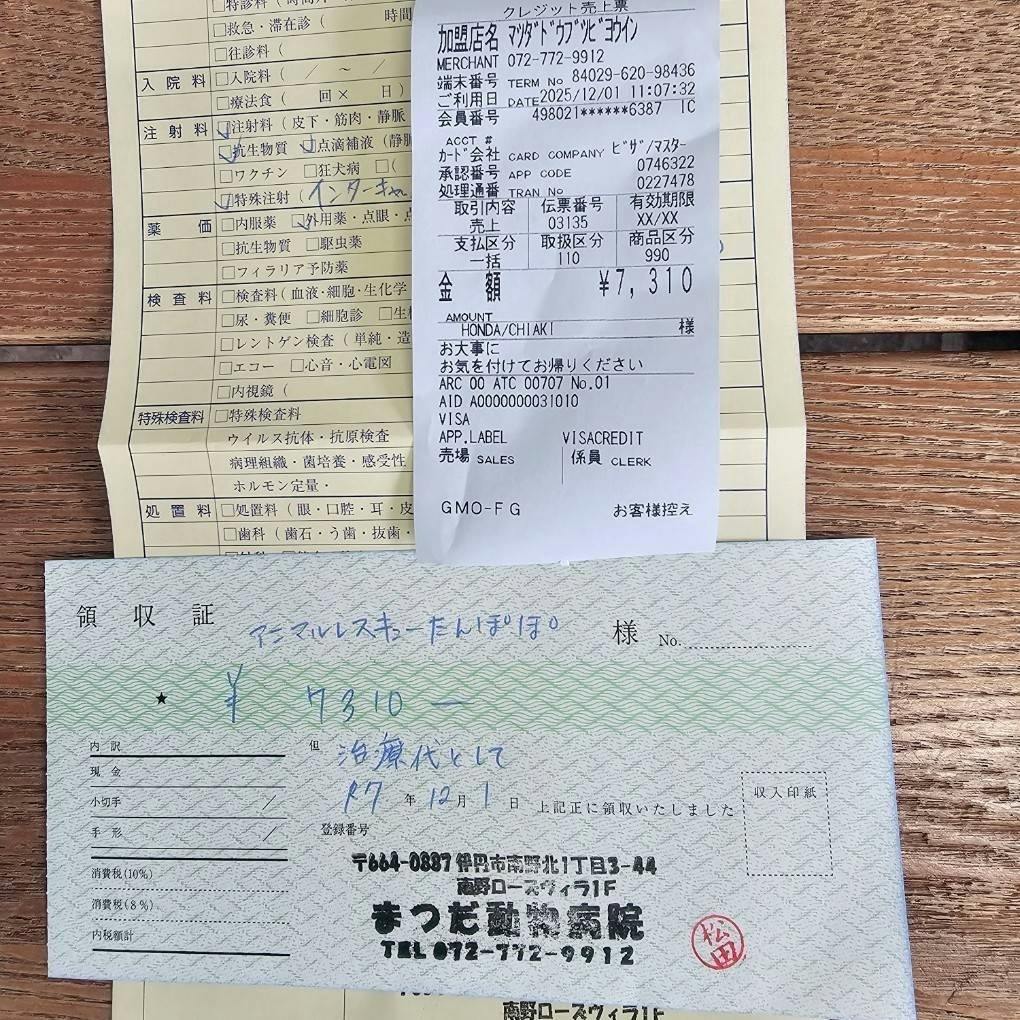 □特診料（時間外・
□救急・滞在診（　　　時間
□往診料（
入院料 □入院料（　／　～　／
□療法食（　　回×　　日）
注射料 ☑注射料（皮下・筋肉・静脈
☑抗生物質 ☑点滴補液（静脈
□ワクチン □狂犬病 □（
☑特殊注射（インターキャ
薬価 □内服薬 ☑外用薬・点眼・点
□抗生物質 □駆虫薬
□フィラリア予防薬
検査料 □検査料（血液・細胞・生化学
□尿・糞便 □細胞診 □生
□レントゲン検査（単純・造
□エコー □心音・心電図
□内視鏡（
特殊検査料 □特殊検査料
ウイルス抗体・抗原検査
病理組織・菌培養・感受性
ホルモン定量・
処置料 □処置料（眼・口腔・耳・皮
□歯科（歯石・う歯・抜歯・
クレジット売上票
加盟店名 マツダドウブツビヨウイン
MERCHANT 072-772-9912
端末番号 TERM No 84029-620-98436
ご利用日 DATE 2025/12/01 11:07:32
会員番号 498021******6387 IC
ACCT #
カード会社 CARD COMPANY ビザ/マスター
承認番号 APP CODE 0746322
処理通番 TRAN No 0227478
取引内容 伝票番号 有効期限
売上 03135 XX/XX
支払区分 取扱区分 商品区分
一括 110 990
金額 ¥7,310
AMOUNT
HONDA/CHIAKI 様
お大事に
お気を付けてお帰りください
ARC 00 ATC 00707 No.01
AID A0000000031010
VISA
APP.LABEL VISACREDIT
売場 SALES 係員 CLERK
GMO-FG お客様控え
領収証 アニマルレスキューたんぽぽ 様 No.
★ ¥ 7310—
内訳 但 治療代として
現金
小切手 ／ R7年12月1日 上記正に領収いたしました 収入印紙
手形 ／ 登録番号
消費税(10%)
消費税(8%)
内税額計
〒664-0887 伊丹市南野北1丁目3-44
南野ローズヴィラ1F
まつだ動物病院
TEL 072-772-9912
松田
南野ローズヴィラ1F